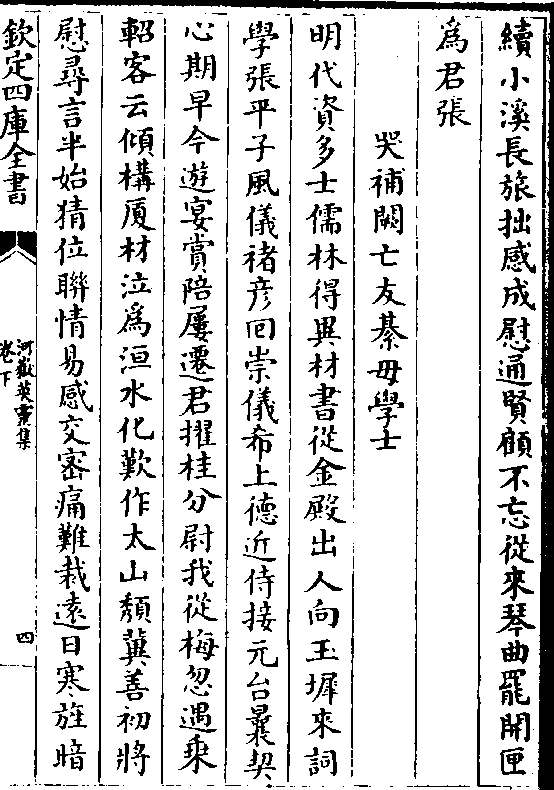 續小溪長旅拙感成慰通賢顧不忘從來琴曲罷開匣
為君張
哭補闕亡友綦毋學士
明代資多士儒林得異材書從金殿出人向玉墀來詞
學張平子風儀褚彦回崇儀希上德近侍接元台曩契
心期早今遊宴賞陪屢遷君擢桂分尉我從梅忽遇乘
軺客云傾構厦材泣為洹水化歎作太山頹冀善初將
慰尋言半始猜位聯情易感交密痛難裁遠日寒旌暗
欽定四庫全書
河嶽英靈集
卷下
四